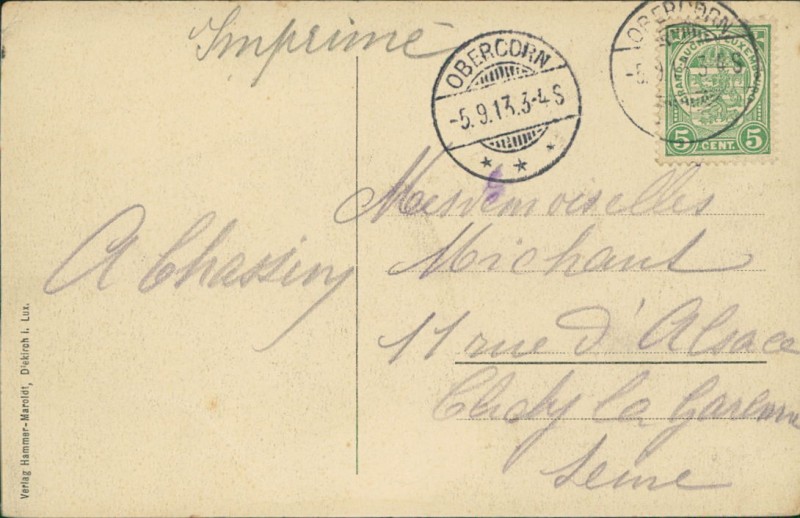 Imprimé
OBERCORN
-5.9.13.3-4 S
OBERCORN
GRAND-DUCHÉ DE LUXEMBOURG
5 CENT. 5
Mesdemoiselles
Michaut
11 rue d'Alsace
Clichy la Garenne
Seine
A Chassiny
Verlag Hammer-Maroldt, Diekirch i. Lux.